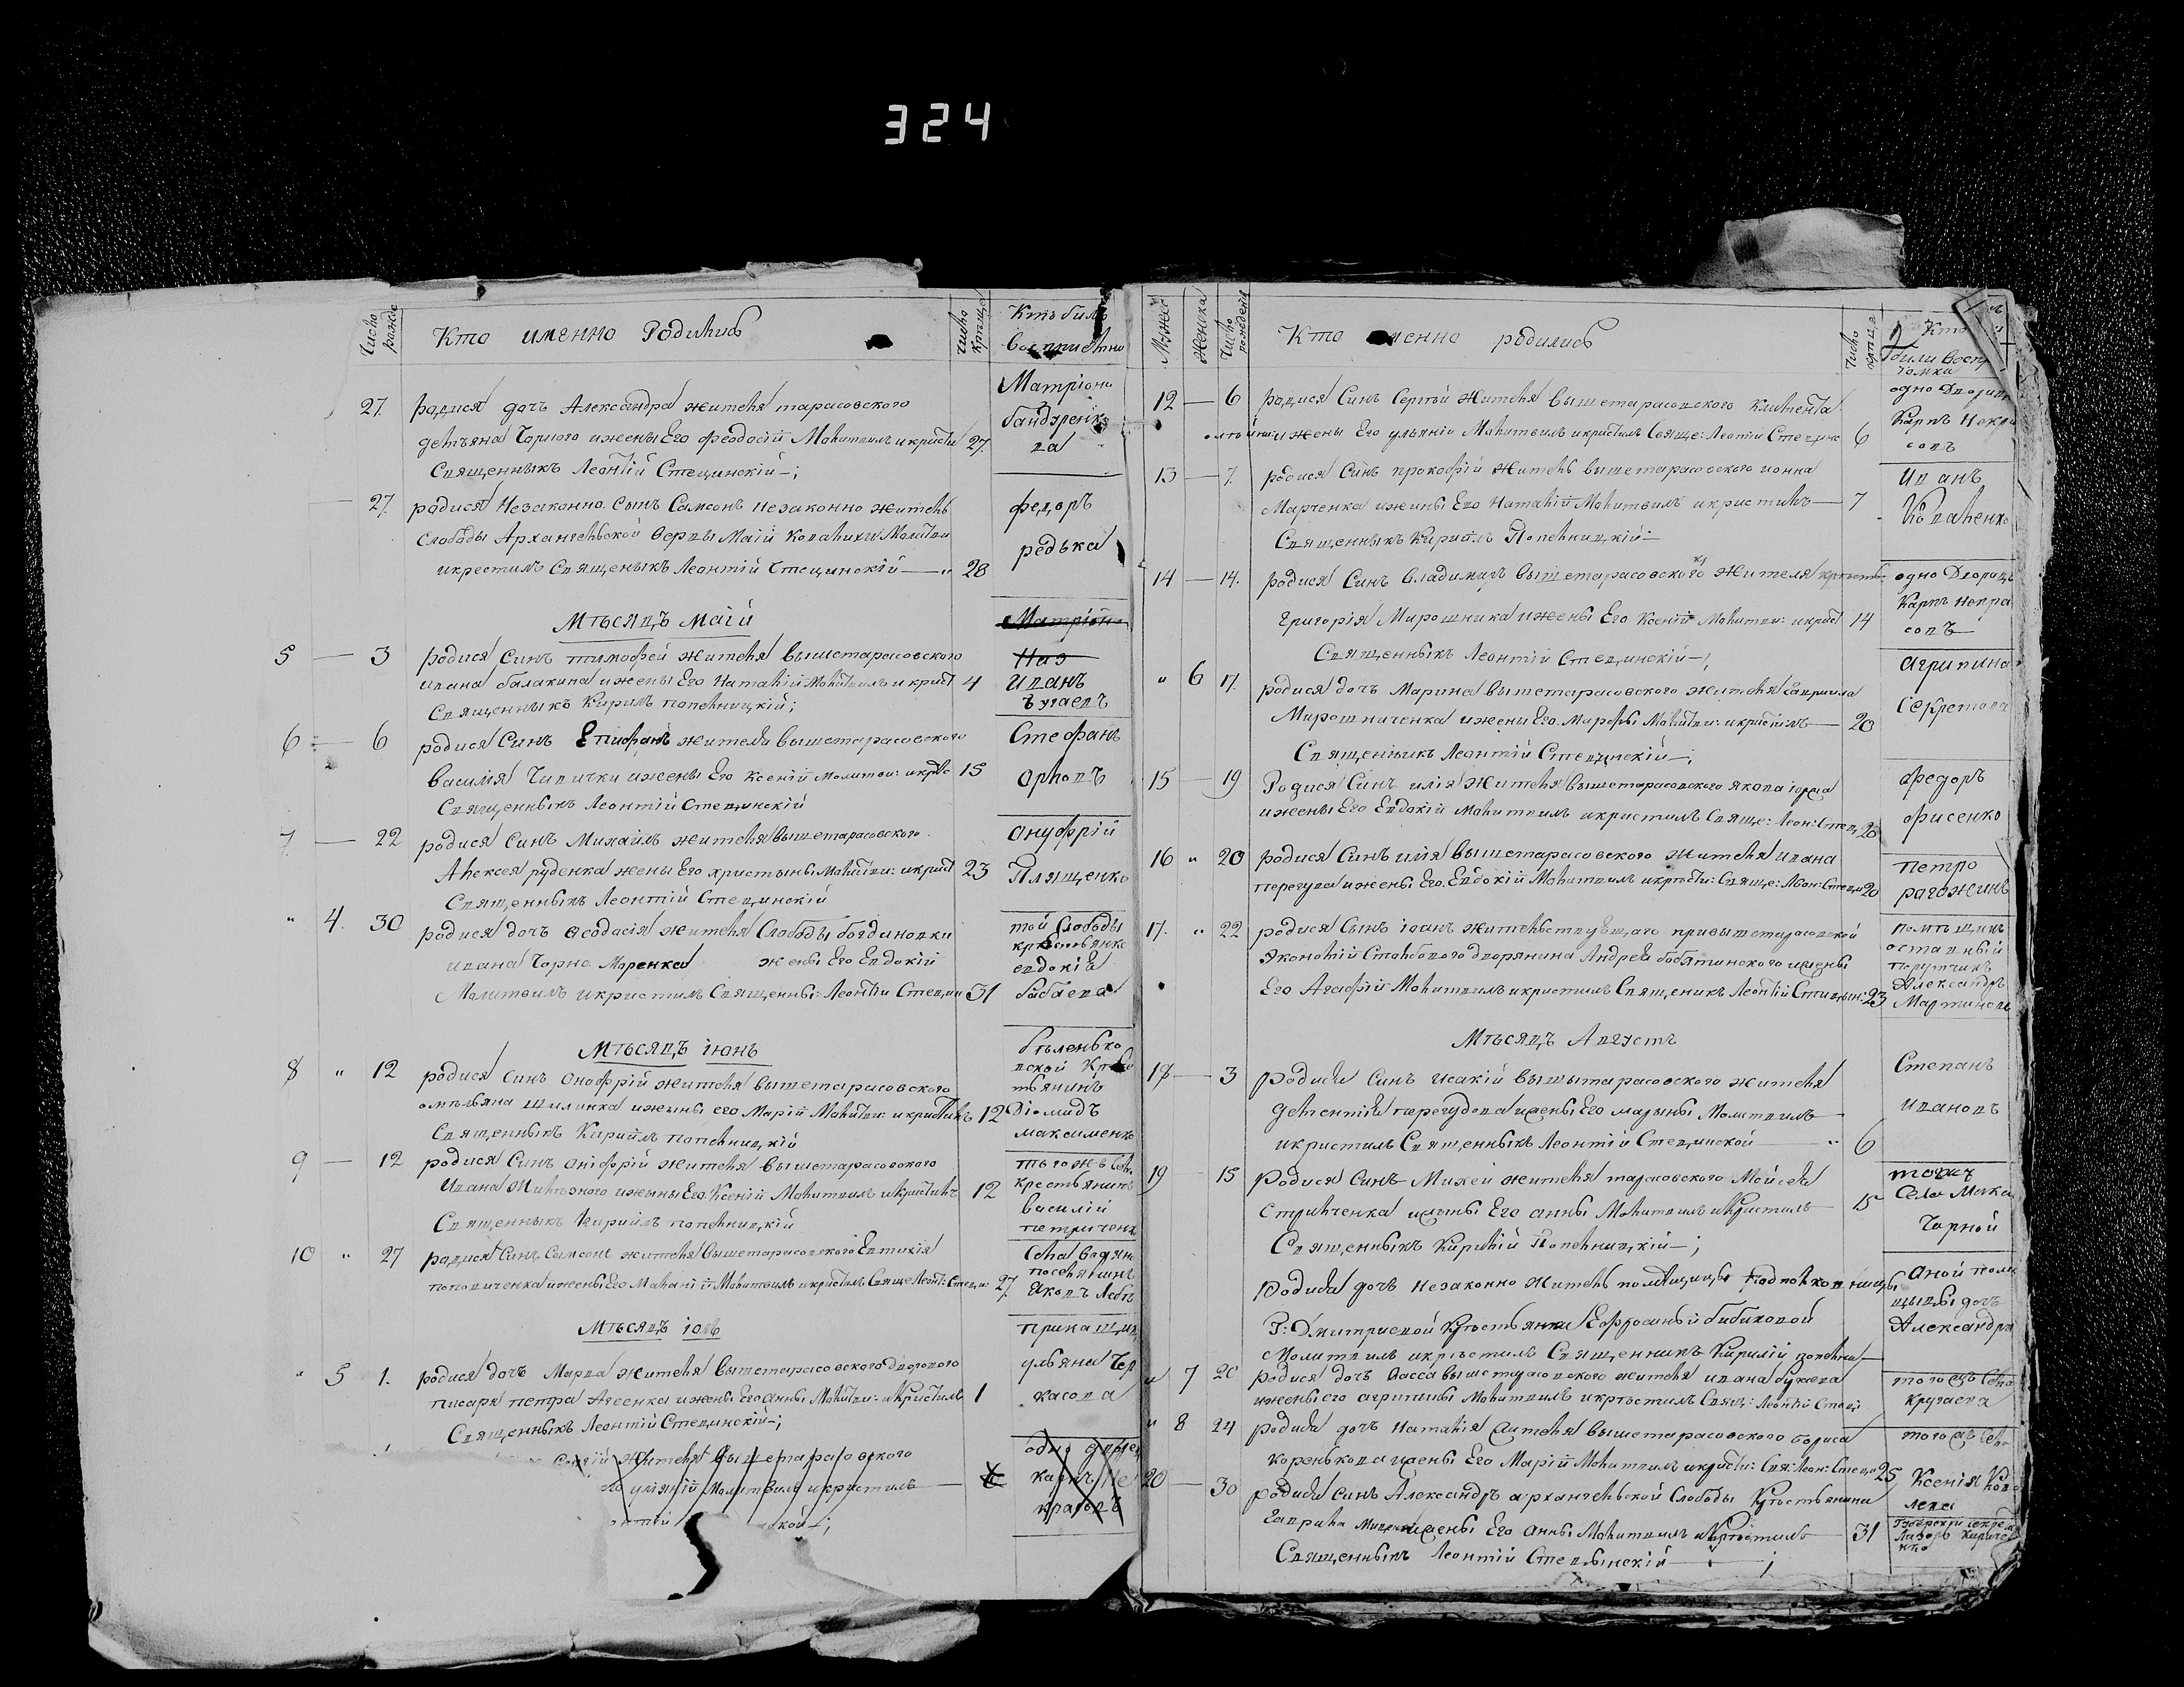 324
Число рожде
Кто именно Родилсъ
Число крѣще
Ктъ билъ
восприетни
27 родися дочъ Александра жителя тарасовского
делъяна Чорного ижены Его феодосій Молитвилъ икристи 27
Священныкъ Леонтій Стецинскій
Матріона
бандуренко
ва
27 родися Незаконно. Сынъ Самсонъ незаконно житель
слободы Архангельской Маій Молитви
икрестилъ Священыкъ Леонтій Стецинскій 28
федоръ
редька
Мѣсяцъ Маій
5 — 3 родися Синъ тимофей жителя вышетарасовского
ивана балакина ижены Его Наталій Молитвилъ икрист 4
Священныкъ Кирилъ попельницкій;
Иванъ
6 — 6 родися Синъ Епифанъ жителя вышетарасовского
василія Чипички ижены Его Ксеній Молитви: икрис 15
Священныкъ Леонтій Стецинскій
Стефанъ
орловъ
7 — 22 родися Синъ Михайлъ жителя вышетарасовского
Алексея руденка жены Его христыны Молитви: икрист 23
Священныкъ Леонтій Стецинскій
онуфрій
Плященко
" 4. 30 родися дочъ Феодасія жителя Слободы богдановки
ивана Чорно Маренка жены Его Евдокій
Молитвилъ икристилъ Священны: Леонтій Стецин 31
той Слободы
крестьянка
евдокія
бабаева
Мѣсяцъ іюнь
8 " 12 родися Синъ Онофрій жителя вышетарасовского
омельяна Шиленка ижыны его Марій Молитви: икристилъ 12
Священныкъ Кирійлъ попельницкій
бѣленько
вской
тьянинъ
Діомидъ
максименко
9 — 12 родися Синъ Онофрій жителя вышетарасовского
Ивана ижыны Его Ксеній Молитвилъ икристилъ 12
Священныкъ Кирийлъ попельницкій
тогожъ Села
крестьянинъ
василій
петриченк
10 " 27 родися Синъ Самсонъ жителя вышетарасовского Евтихія
поповиченка ижены Его Маланій Молитвилъ икристилъ Свяще Леонт: Стеци: 27
Села водян
поселянинъ
Яковъ
Мѣсяцъ іюль
" 5 1. родися дочъ Марва жителя вышетарасовского дворового
писаря петра ижены Его Анны Молитви: икристилъ 1
Священныкъ Леонтій Стецинскій;
прикащиц
ульяна Чер
касова
жителя вышетарасовского
уліяній Молитвилъ икристилъ
одно двор
карпъ Не
красовъ
Мужес
Женска
Число рожденія
Кто именно родилисъ
Число крѣще
Кто
били воспр
12 — 6 родися Синъ Сергей жителя вышетарасовского Климента
ижены Его ульяній Молитвилъ икристилъ Свяще: Леотій Стецинс 6
одно Дворип
Карпъ Некра
совъ
13 — 7. родися Синъ прокофій житель вышетарасовского ионна
Марченка ижины Его Наталій Молитвилъ икристилъ — 7
Священныкъ Кирийлъ Попельницкій
Иванъ
Коваленко
14 — 14. родися Синъ владимиръ вышетарасовского жителя
григорія Мирошника ижены Его Ксеній Молитви: икрист 14
Священныкъ Леонтій Стецинскій
одно Дворецъ
Карпъ Некра
совъ
" 6 17. родися дочъ Марина вышетарасовского жителя гавриила
Мирошниченка ижены Его Марфы Молитви: икристилъ — 20
Священныкъ Леонтій Стецинскій
агрипина
Секретова
15 — 19 Родися Синъ илія жителя вышетарасовского якова
ижены Его Евдокій Молитвилъ икристилъ Свяще: Леон: Стец 20
федоръ
фисенко
16 " 20 родися Синъ илія вышетарасовского жителя ивана
перегуда ижены Его Евдокій Молитвилъ икрѣсти: Свяще: Леон: Стеци 20
петро
рагожинъ
17. " 22 родися Сынъ іоанъ жительствующаго привышетарасовской
экономій Столбового дворянина Андрея ижены
Его Агафій Молитвилъ икристилъ Священикъ Леонтій Стицын: 23
помѣщикъ
отставный
порутчикъ
Александръ
Мартинов
Мѣсяцъ Августъ
18 — 3 родися Синъ исакій вышытарасовского жителя
дементія перегудова ижены Его марыны Молитвилъ
икристилъ Священныкъ Леонтій Стецинской — " 6
Степанъ
ивановъ
19 15 Родися Синъ Михей жителя тарасовского Мойсея
Стрилченка ижыны Его анны Молитвилъ икристилъ 15
Священныкъ Кирилій Попельницкій;
Чорной
Родися дочъ незаконно житель помѣщицы подполковницы
Г: Дмитриевой Крѣстьянки Еффросиньй бибиковой
Молитвилъ икрѣстилъ Священникъ Кирилій попельни
оной поме
щыцы дочъ
Александра
" 7 20 родися дочъ Васса вышетарасовского жителя ивана бужева
ижены его агрипины Молитвилъ икрѣстилъ Свящ: Леонтій Стеци
того жъ Села
Кругаева
" 8 24 родися дочъ Наталія жителя вышетарасовского бориса
коренькова ижены Его Марій Молитвилъ икристи: Свя: Леон: Стеци 25
того жъ Села
Ксенія
20 — 30 родися Синъ Александръ архангельской Слободы Крѣстьянина
гаврила ижены Его анны Молитвилъ икрѣстилъ — 31
Священныкъ Леонтій Стецынскій
Губернский секре